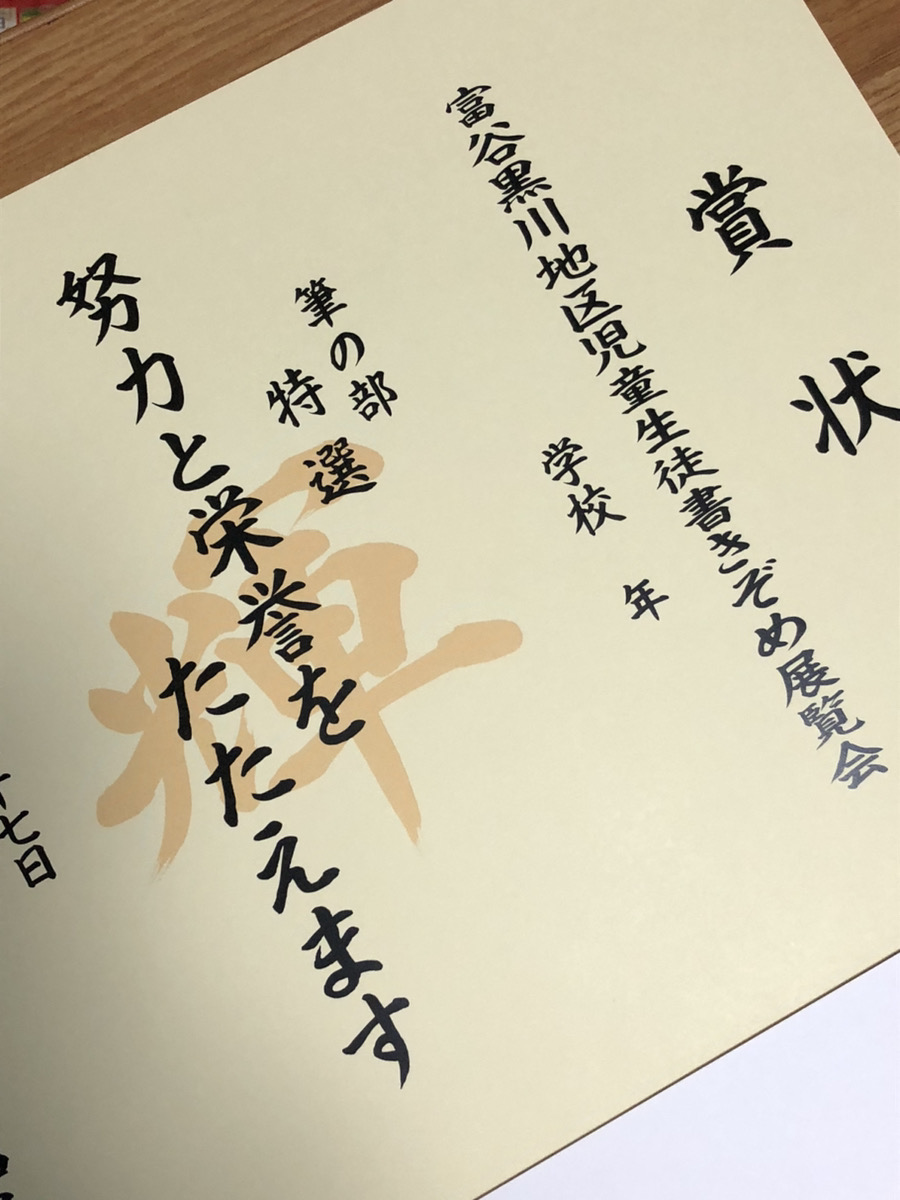 賞状
富谷黒川地区児童生徒書きぞめ展覧会
学校 年
筆の部
特選
努力と栄誉を
たたえます
輝
七日